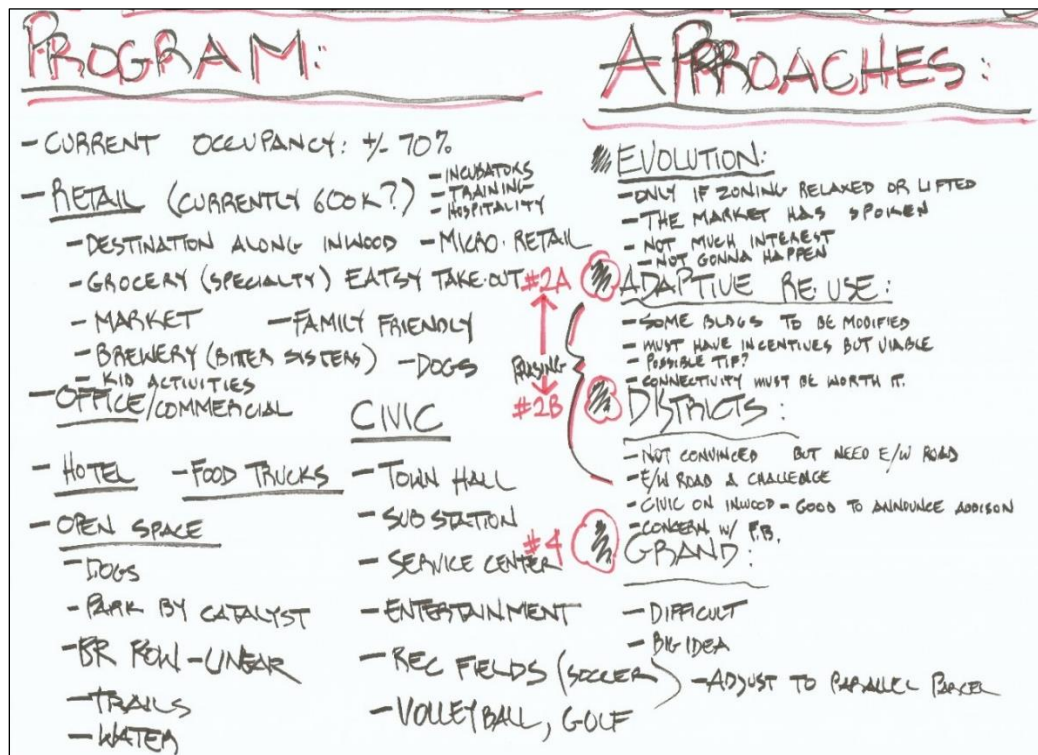 PROGRAM:
- CURRENT OCCUPANCY: +/- 70%
- RETAIL (CURRENTLY 600K?)
- INCUBATORS
- TRAINING
- HOSPITALITY
- DESTINATION ALONG INWOOD - MICRO-RETAIL
- GROCERY (SPECIALTY) EATSY TAKE-OUT
- MARKET - FAMILY FRIENDLY
- BREWERY (BITTER SISTERS) - DOGS
- KID ACTIVITIES
- OFFICE/COMMERCIAL
- HOTEL - FOOD TRUCKS
- OPEN SPACE
- DOGS
- PARK BY CATALYST
- BR ROW - LINEAR
- TRAILS
- WATER
CIVIC
- TOWN HALL
- SUB STATION
- SERVICE CENTER
- ENTERTAINMENT
- REC FIELDS (SOCCER)
- VOLLEYBALL, GOLF
#2A
PHASING
#2B
#4
APPROACHES:
EVOLUTION:
- ONLY IF ZONING RELAXED OR LIFTED
- THE MARKET HAS SPOKEN
- NOT MUCH INTEREST
- NOT GONNA HAPPEN
ADAPTIVE RE-USE:
- SOME BLDGS TO BE MODIFIED
- MUST HAVE INCENTIVES BUT VIABLE
- POSSIBLE TIF?
- CONNECTIVITY MUST BE WORTH IT.
DISTRICTS:
- NOT CONVINCED BUT NEED E/W ROAD
- E/W ROAD A CHALLENGE
- CIVIC ON INWOOD - GOOD TO ANNOUNCE ADDISON
- CONCERN W/ F.B.
GRAND:
- DIFFICULT
- BIG IDEA
- ADJUST TO PARALLEL PARCEL